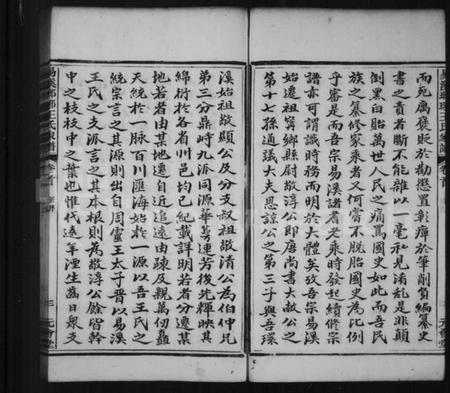 而死厲褒貶於勸懲置彰癉於筆削負編纂史
書之責者斷不能雜以一毫私見淆亂是非顛
倒黑白貽萬世人民之痛罵國史如此而吾民
族之纂修家乘者又何嘗不脫胎國史為比例
乎審是而吾宗易溪諸君老乘時發起續修宗
譜亦可謂識時務而明於大體矣攷吾宗易溪
始遷祖寧鄉縣尉敬淳公即唐尚書大敏公之
第十七孫通議大夫思諒公之第三子與吾琢
溪始祖敬顯公及分支叔祖敬清公為伯仲兄
第三分鼎峙九派同源華萼連芳後先輝映其
綿衍於各省州邑均已紀載詳明若者分遷某
地若者由某地遷自近追遠由疎及親萬仞嵒
天統於一脈百川匯海始於一源以吾王氏之
統宗言之其源則出自周靈王太子晋以易溪
王氏之支派言之其本根則為敬淳公餘皆幹
中之枝枝中之葉也惟代遠年湮生齒日衆支
卷首
三 元會堂